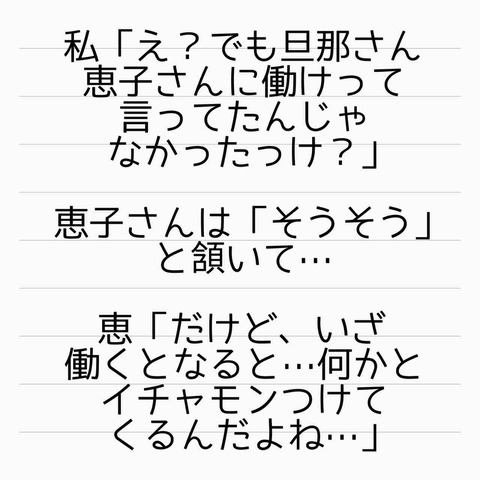 私「え？でも旦那さん
恵子さんに働けって
言ってたんじゃ
なかったっけ？」
恵子さんは「そうそう」
と頷いて…
恵「だけど、いざ
働くとなると…何かと
イチャモンつけて
くるんだよね…」